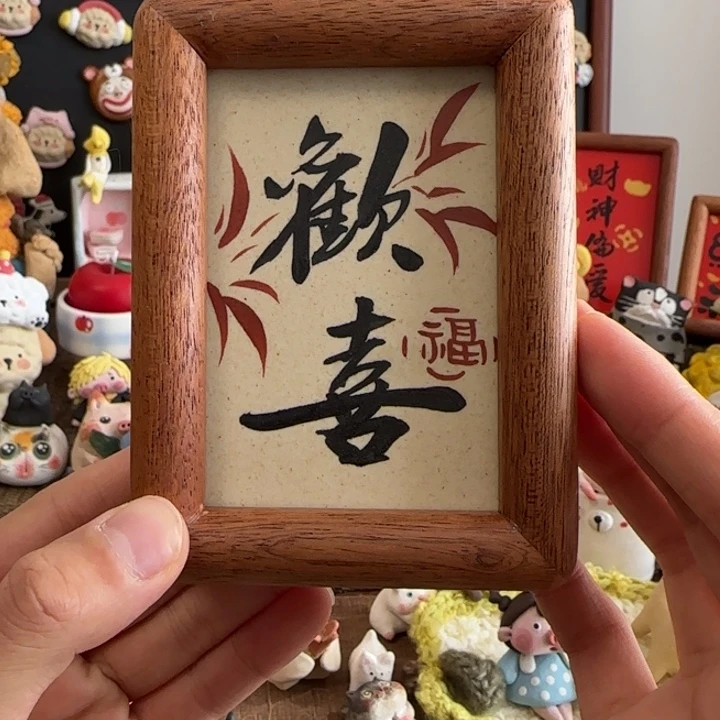 歡
喜
福
财
神
偏
爱